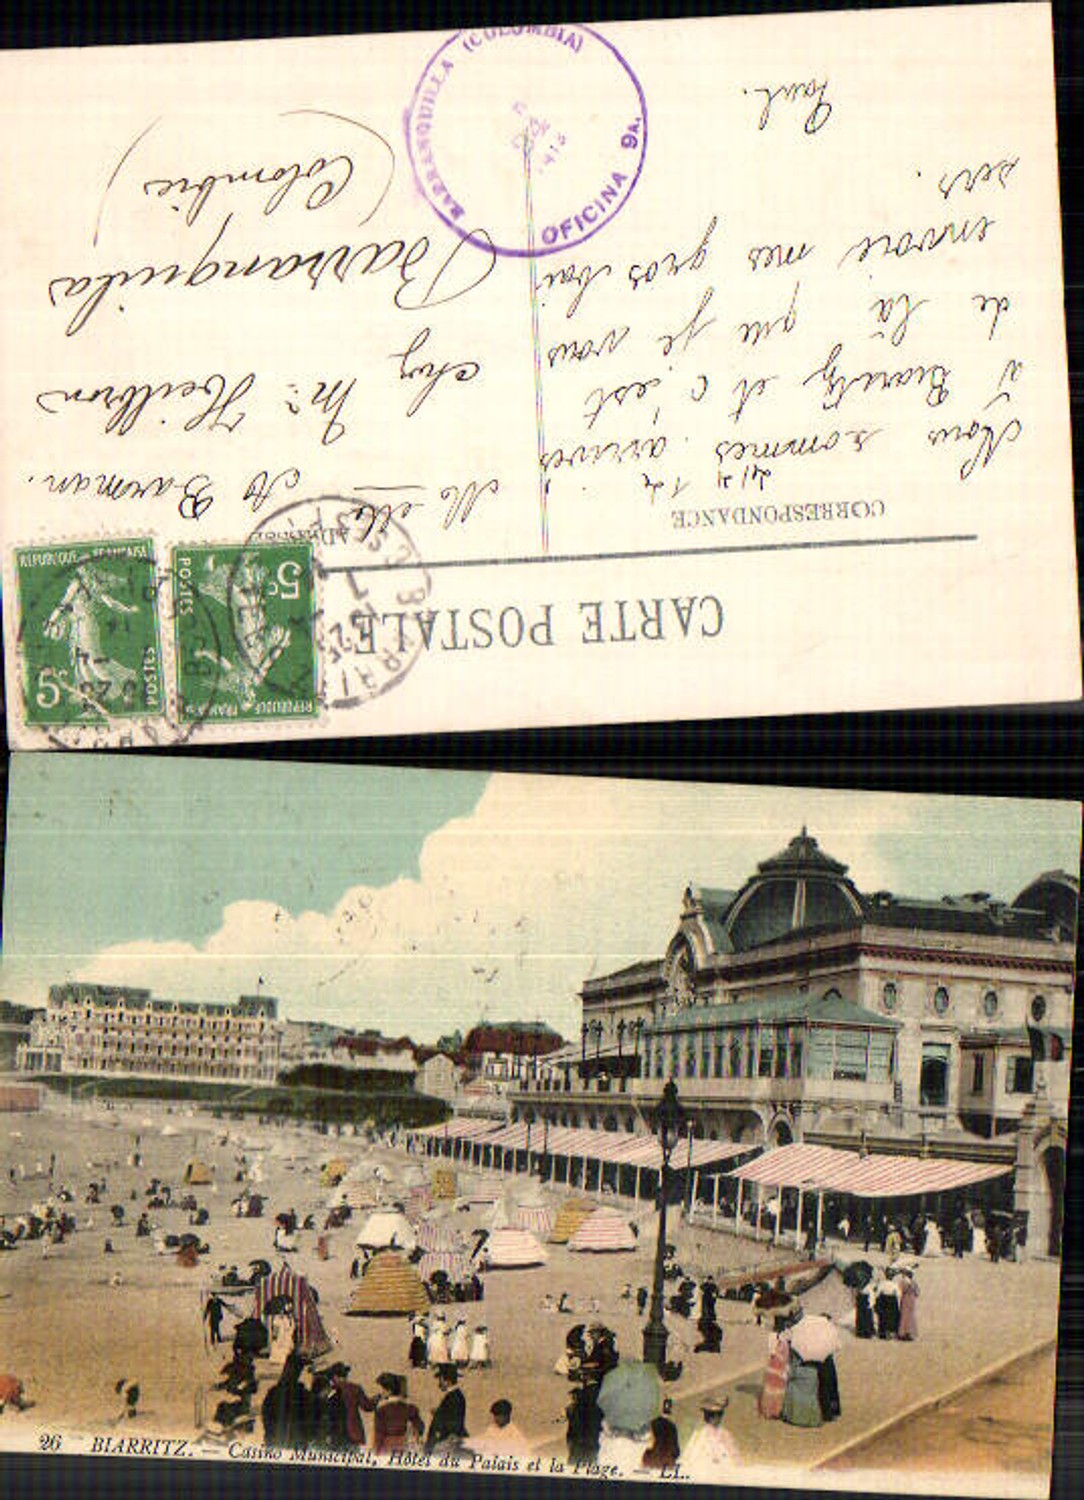 CARTE POSTALE
CORRESPONDANCE
Nous sommes arrivés
à Biarritz et c'est
de là que je vous
envoie mes gros bai
sers.
Paul.
M elle A Barman.
chez Mr Heilbron
Barranquilas
(Colombie)
BARRANQUILLA (COLOMBIA)
OFICINA 9A.
REPUBLIQUE FRANÇAISE
5c POSTES
REPUBLIQUE FRANÇAISE
5c POSTES
26 BIARRITZ. — Casino Municipal, Hôtel du Palais et la Plage. — LL.